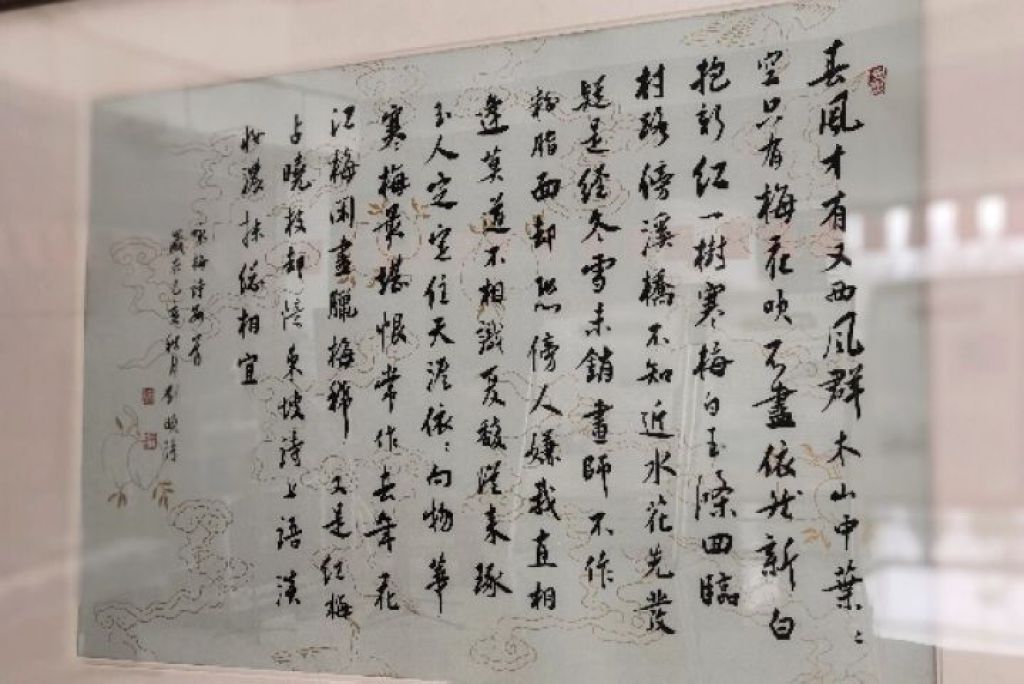 春風才有又西風群木山中葉〻
空只有梅花吹不盡依然新白
抱新红一樹寒梅白玉條回臨
村路傍溪橋不知近水花先發
疑是經冬雪未銷畫師不作
粉脂面却恐傍人嫌我直相
逢莫道不相識夏馥從来琢
玉人定定住天涯依〻向物華
寒梅最堪恨常作去年花
江梅閑盡臘梅稀又是红梅
占曉枝却憶東坡詩上語淡
妝濃抹總相宜
咏梅诗数首
歲在己亥秋月刘